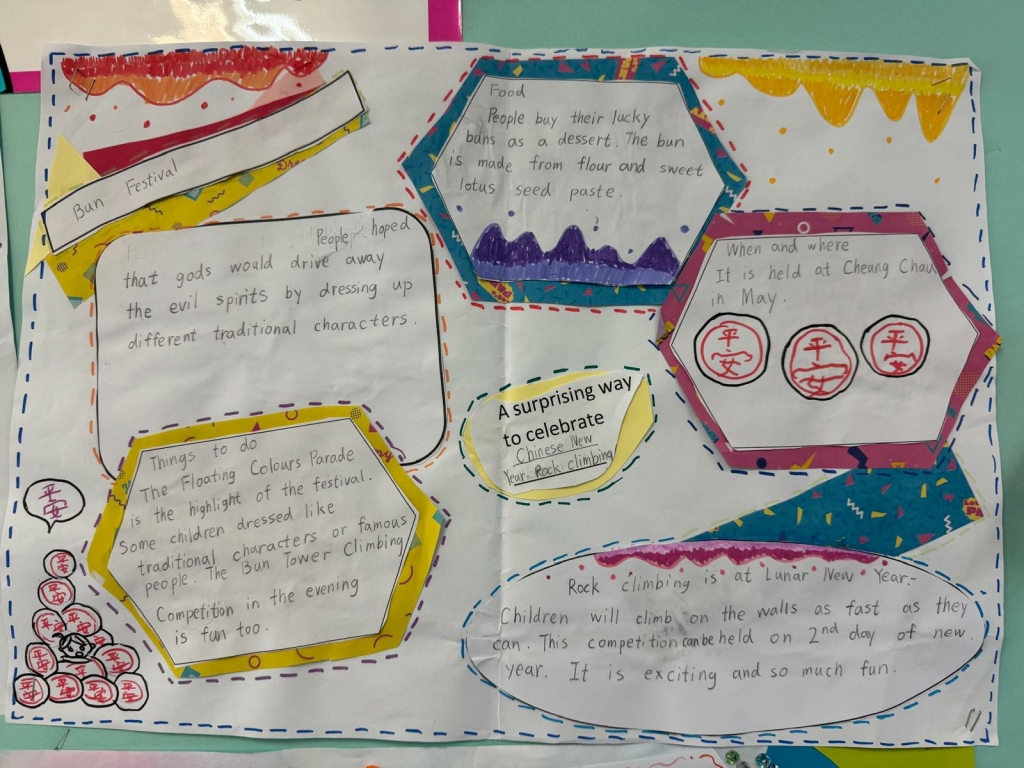 Bun Festival
People hoped
that gods would drive away
the evil spirits by dressing up
different traditional characters.
Food
People buy their lucky
buns as a dessert. The bun
is made from flour and sweet
lotus seed paste.
When and where
It is held at Cheung Chau
in May.
平安
平安
平安
A surprising way
to celebrate
Chinese New
Year: Rock climbing
Things to do
The Floating Colours Parade
is the highlight of the festival.
Some children dressed like
traditional characters or famous
people. The Bun Tower Climbing
Competition in the evening
is fun too.
平安
平安
平安
平安
平安
平安
平安
平安
平安
平安
Rock climbing is at Lunar New Year.
Children will climb on the walls as fast as they
can. This competition can be held on 2nd day of new
year. It is exciting and so much fun.